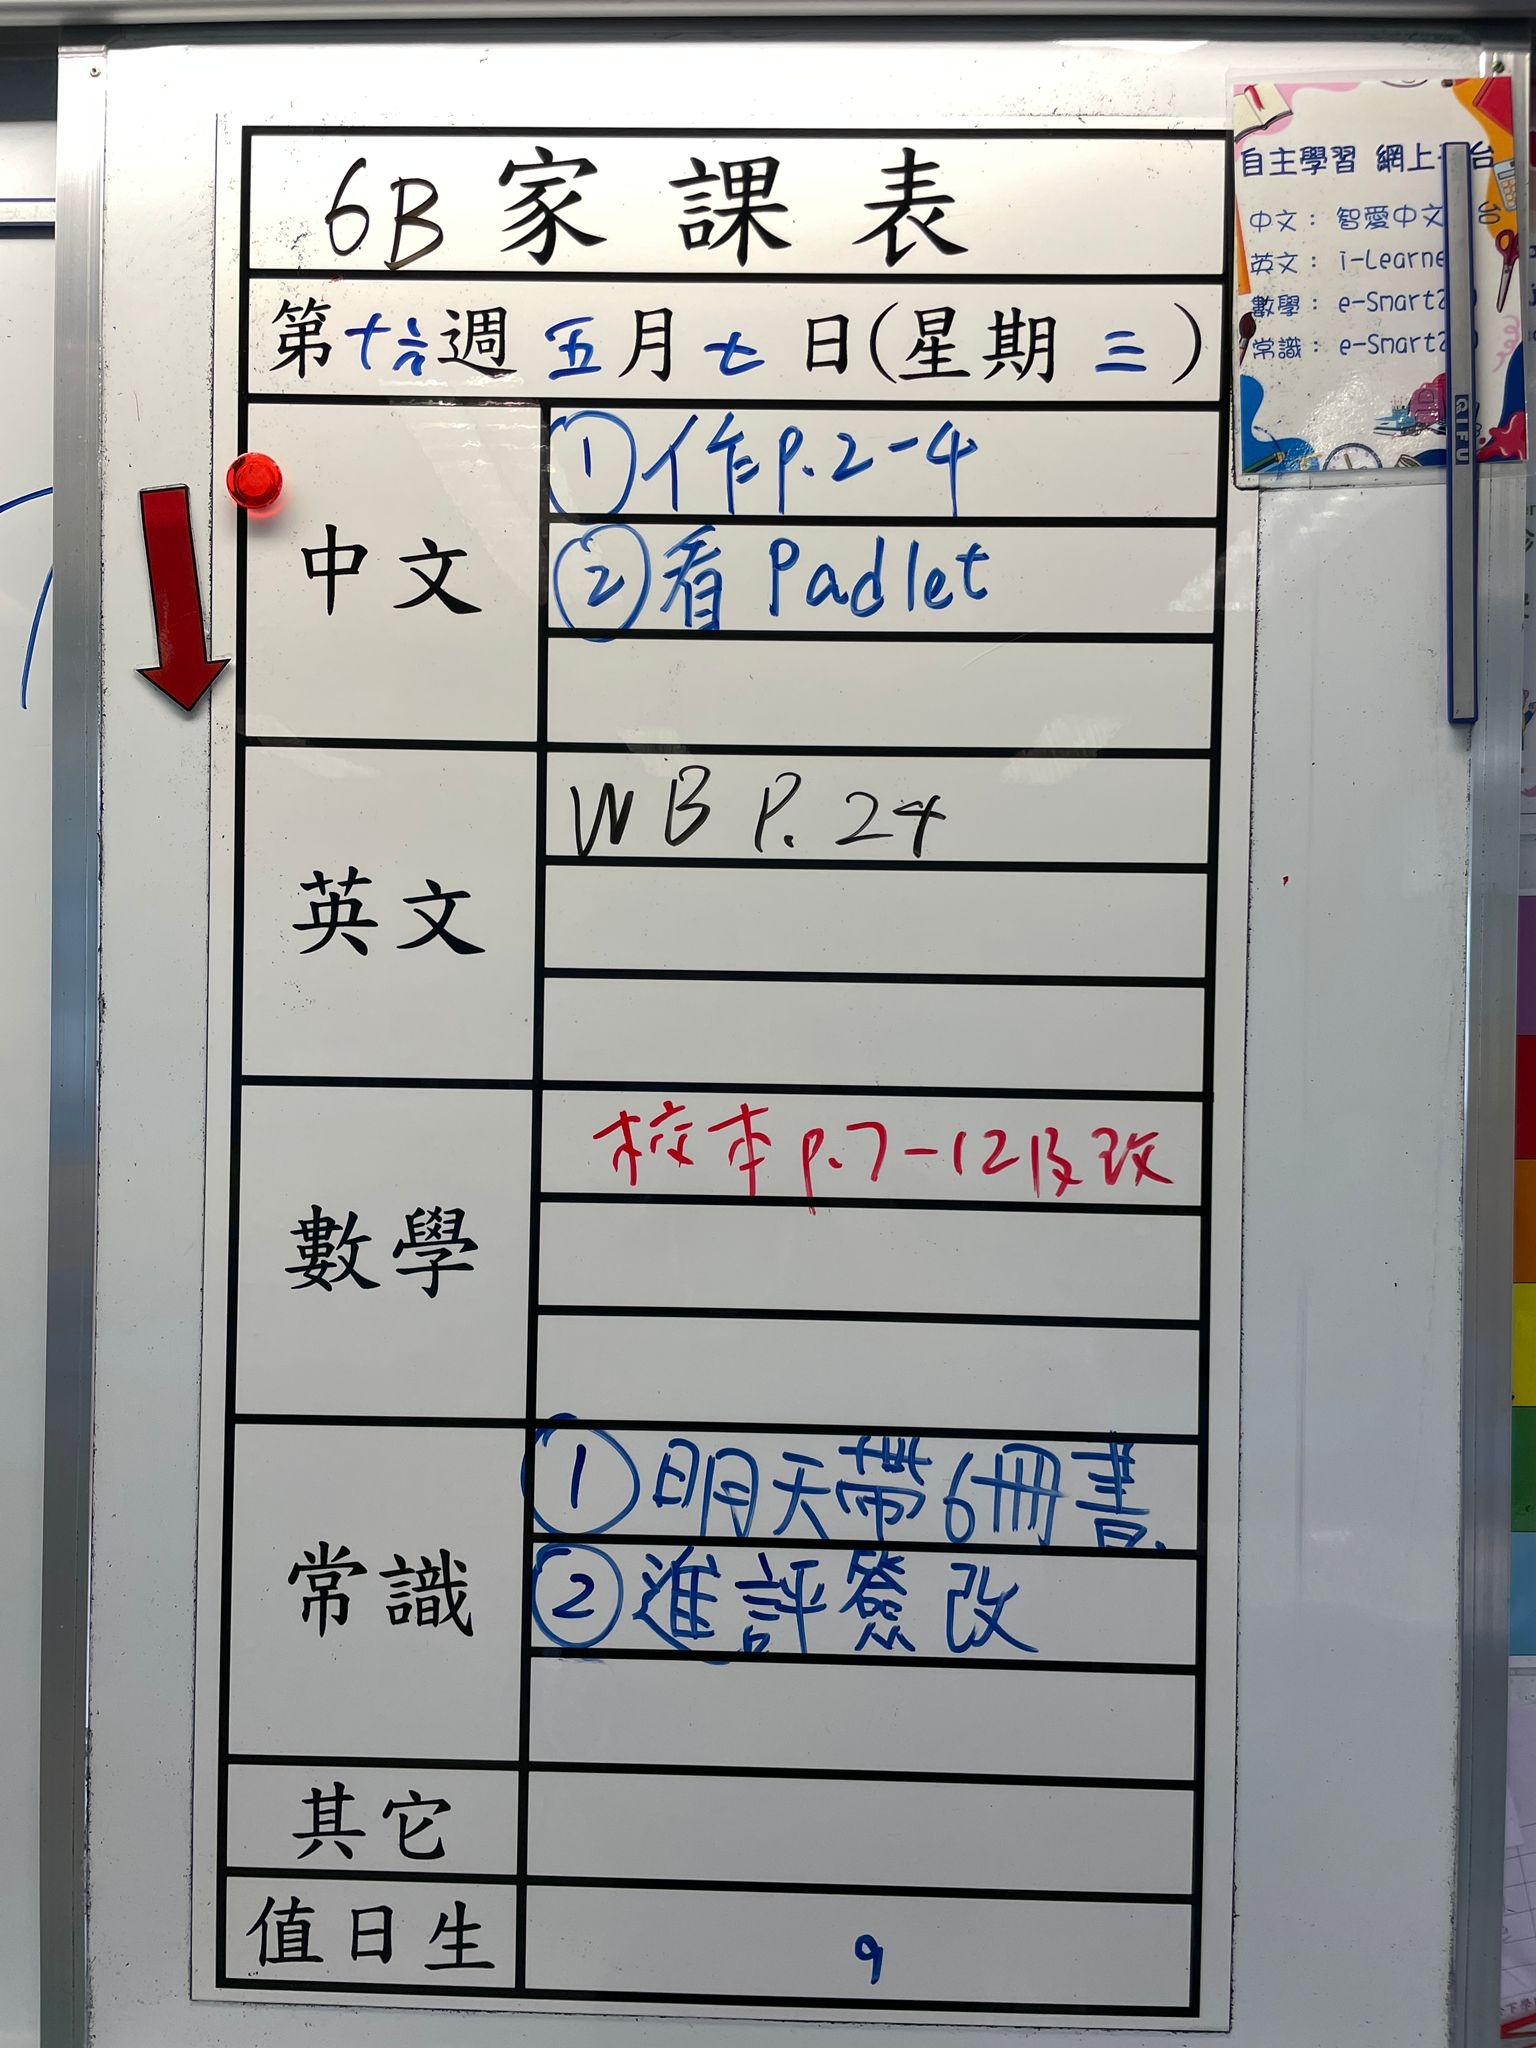 6B 家課表
第十六週 五月七日(星期三)
中文
①作p.2-4
②看Padlet
英文
WB P.24
數學
校本p.7-12及改
常識
①明天帶6冊書
②進評簽改
其它
值日生
9
自主學習 網上 台
中文： 智愛中文 台
英文： i-Learne
數學： e-Smart
常識： e-Smart
QIFU